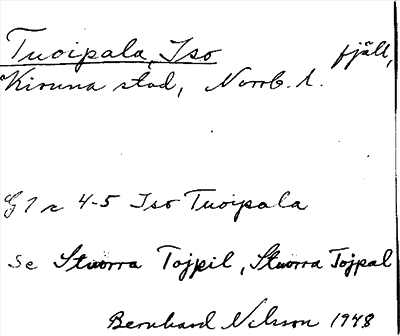 Tuoipala, Iso fjäll,
Kiruna stad, Norrb. l.
G 1 r 4-5 Iso Tuoipala
Se Stuorra Tojpil, Stuorra Tojpal
Bernhard Nilsson 1948